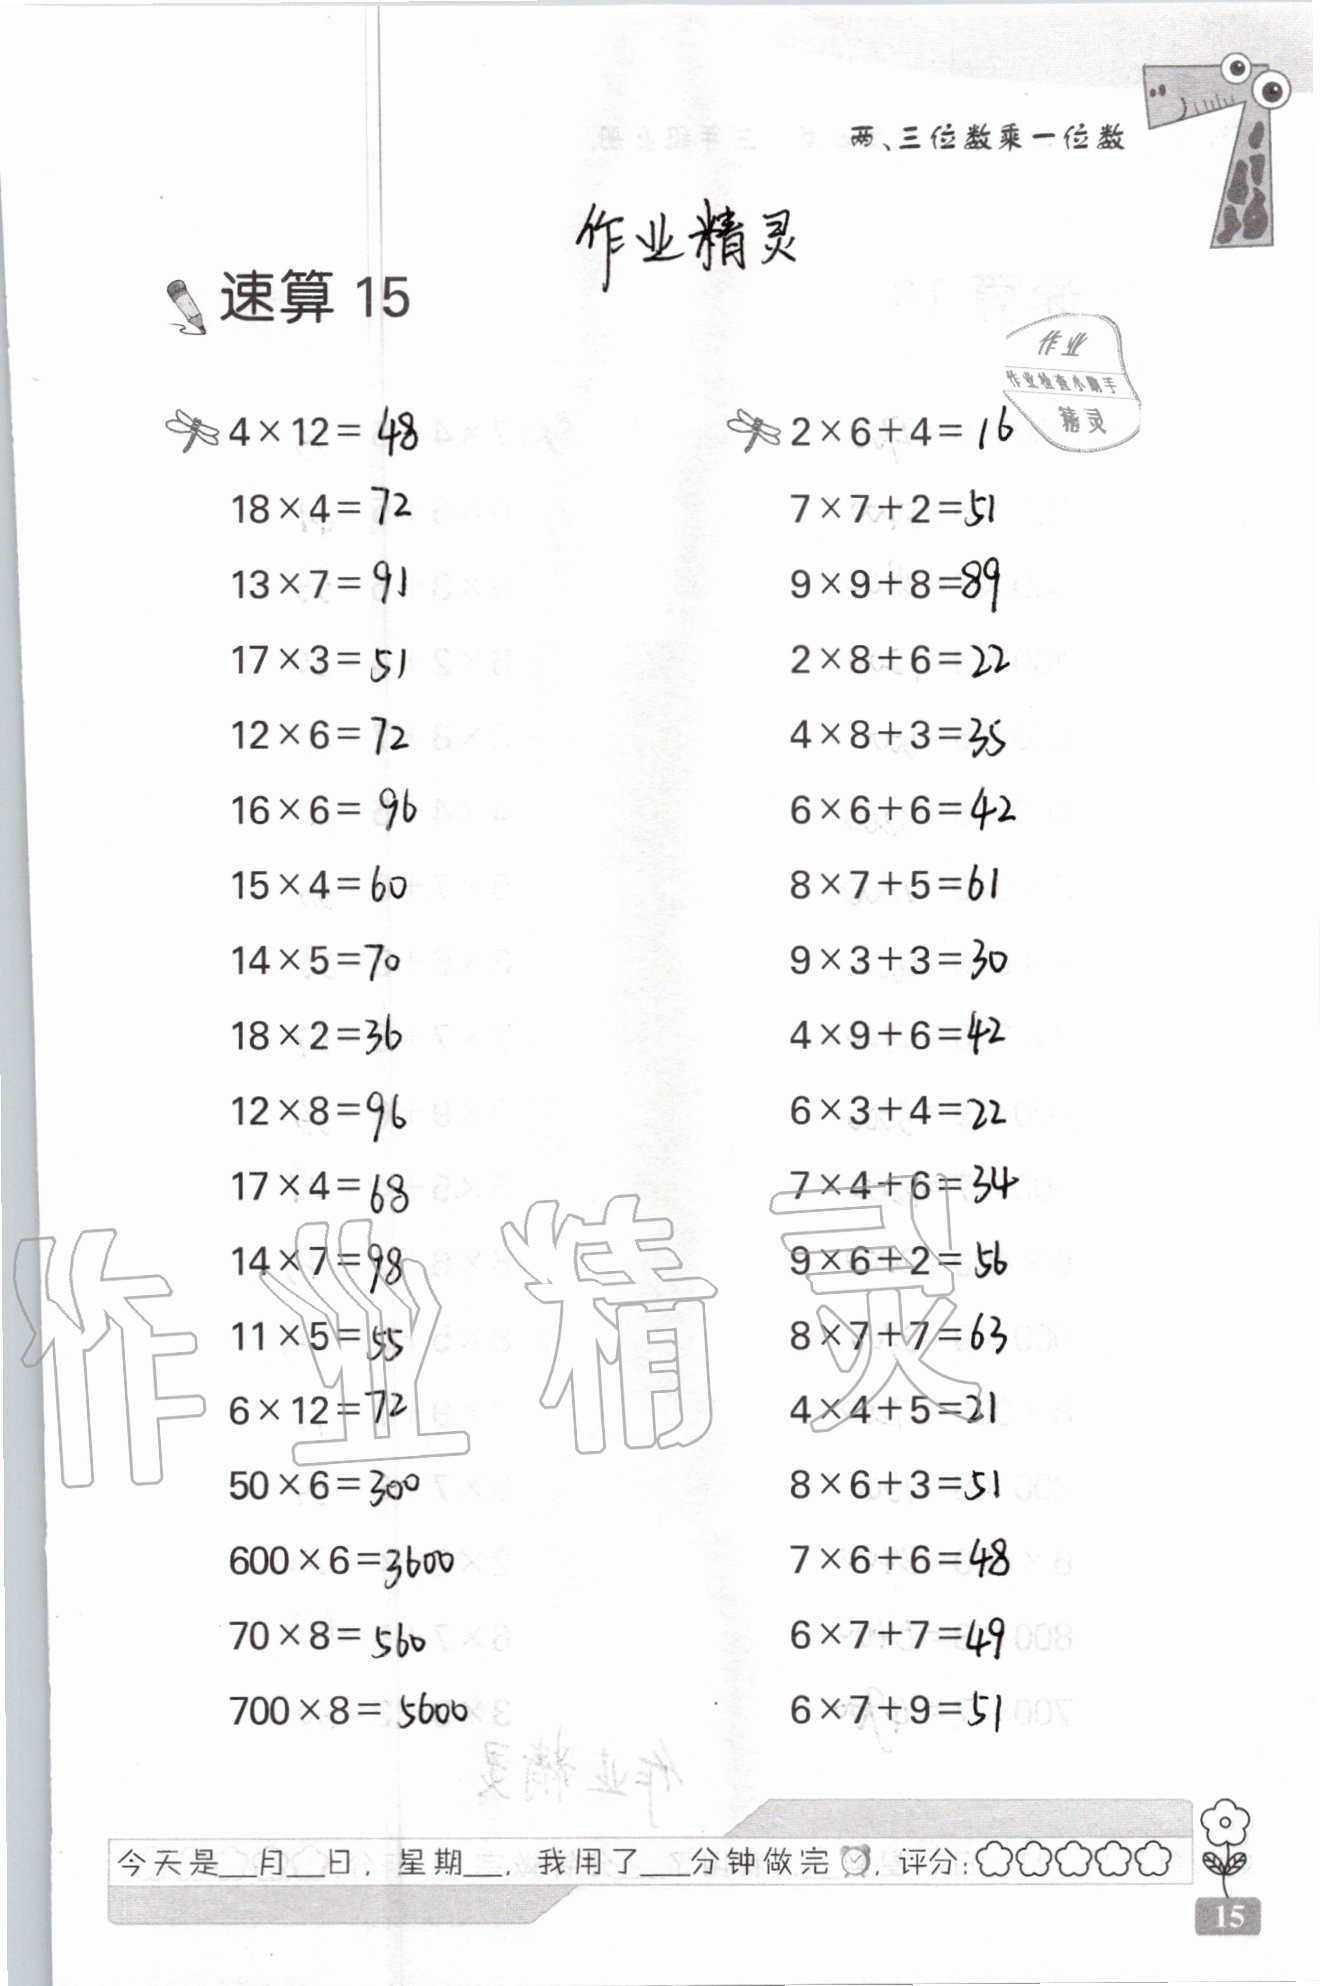 两、三位数乘一位数
作业精灵
速算 15
作业
作业检查小助手
精灵
4×12=48
18×4=72
13×7=91
17×3=51
12×6=72
16×6=96
15×4=60
14×5=70
18×2=36
12×8=96
17×4=68
14×7=98
11×5=55
6×12=72
50×6=300
600×6=3600
70×8=560
700×8=5600
2×6+4=16
7×7+2=51
9×9+8=89
2×8+6=22
4×8+3=35
6×6+6=42
8×7+5=61
9×3+3=30
4×9+6=42
6×3+4=22
7×4+6=34
9×6+2=56
8×7+7=63
4×4+5=21
8×6+3=51
7×6+6=48
6×7+7=49
6×7+9=51
作业精灵
今天是__月__日，星期__，我用了__分钟做完，评分：
15